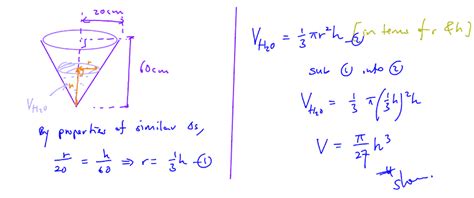 20cm
60cm
r
h
V_H₂O
By properties of similar Δs,
r/20 = h/60 ⇒ r = 1/3 h —①
V_H₂O = 1/3 πr²h —② [in terms of r & h]
sub ① into ②
V_H₂O = 1/3 π(1/3 h)²h
V = π/27 h³
shown.